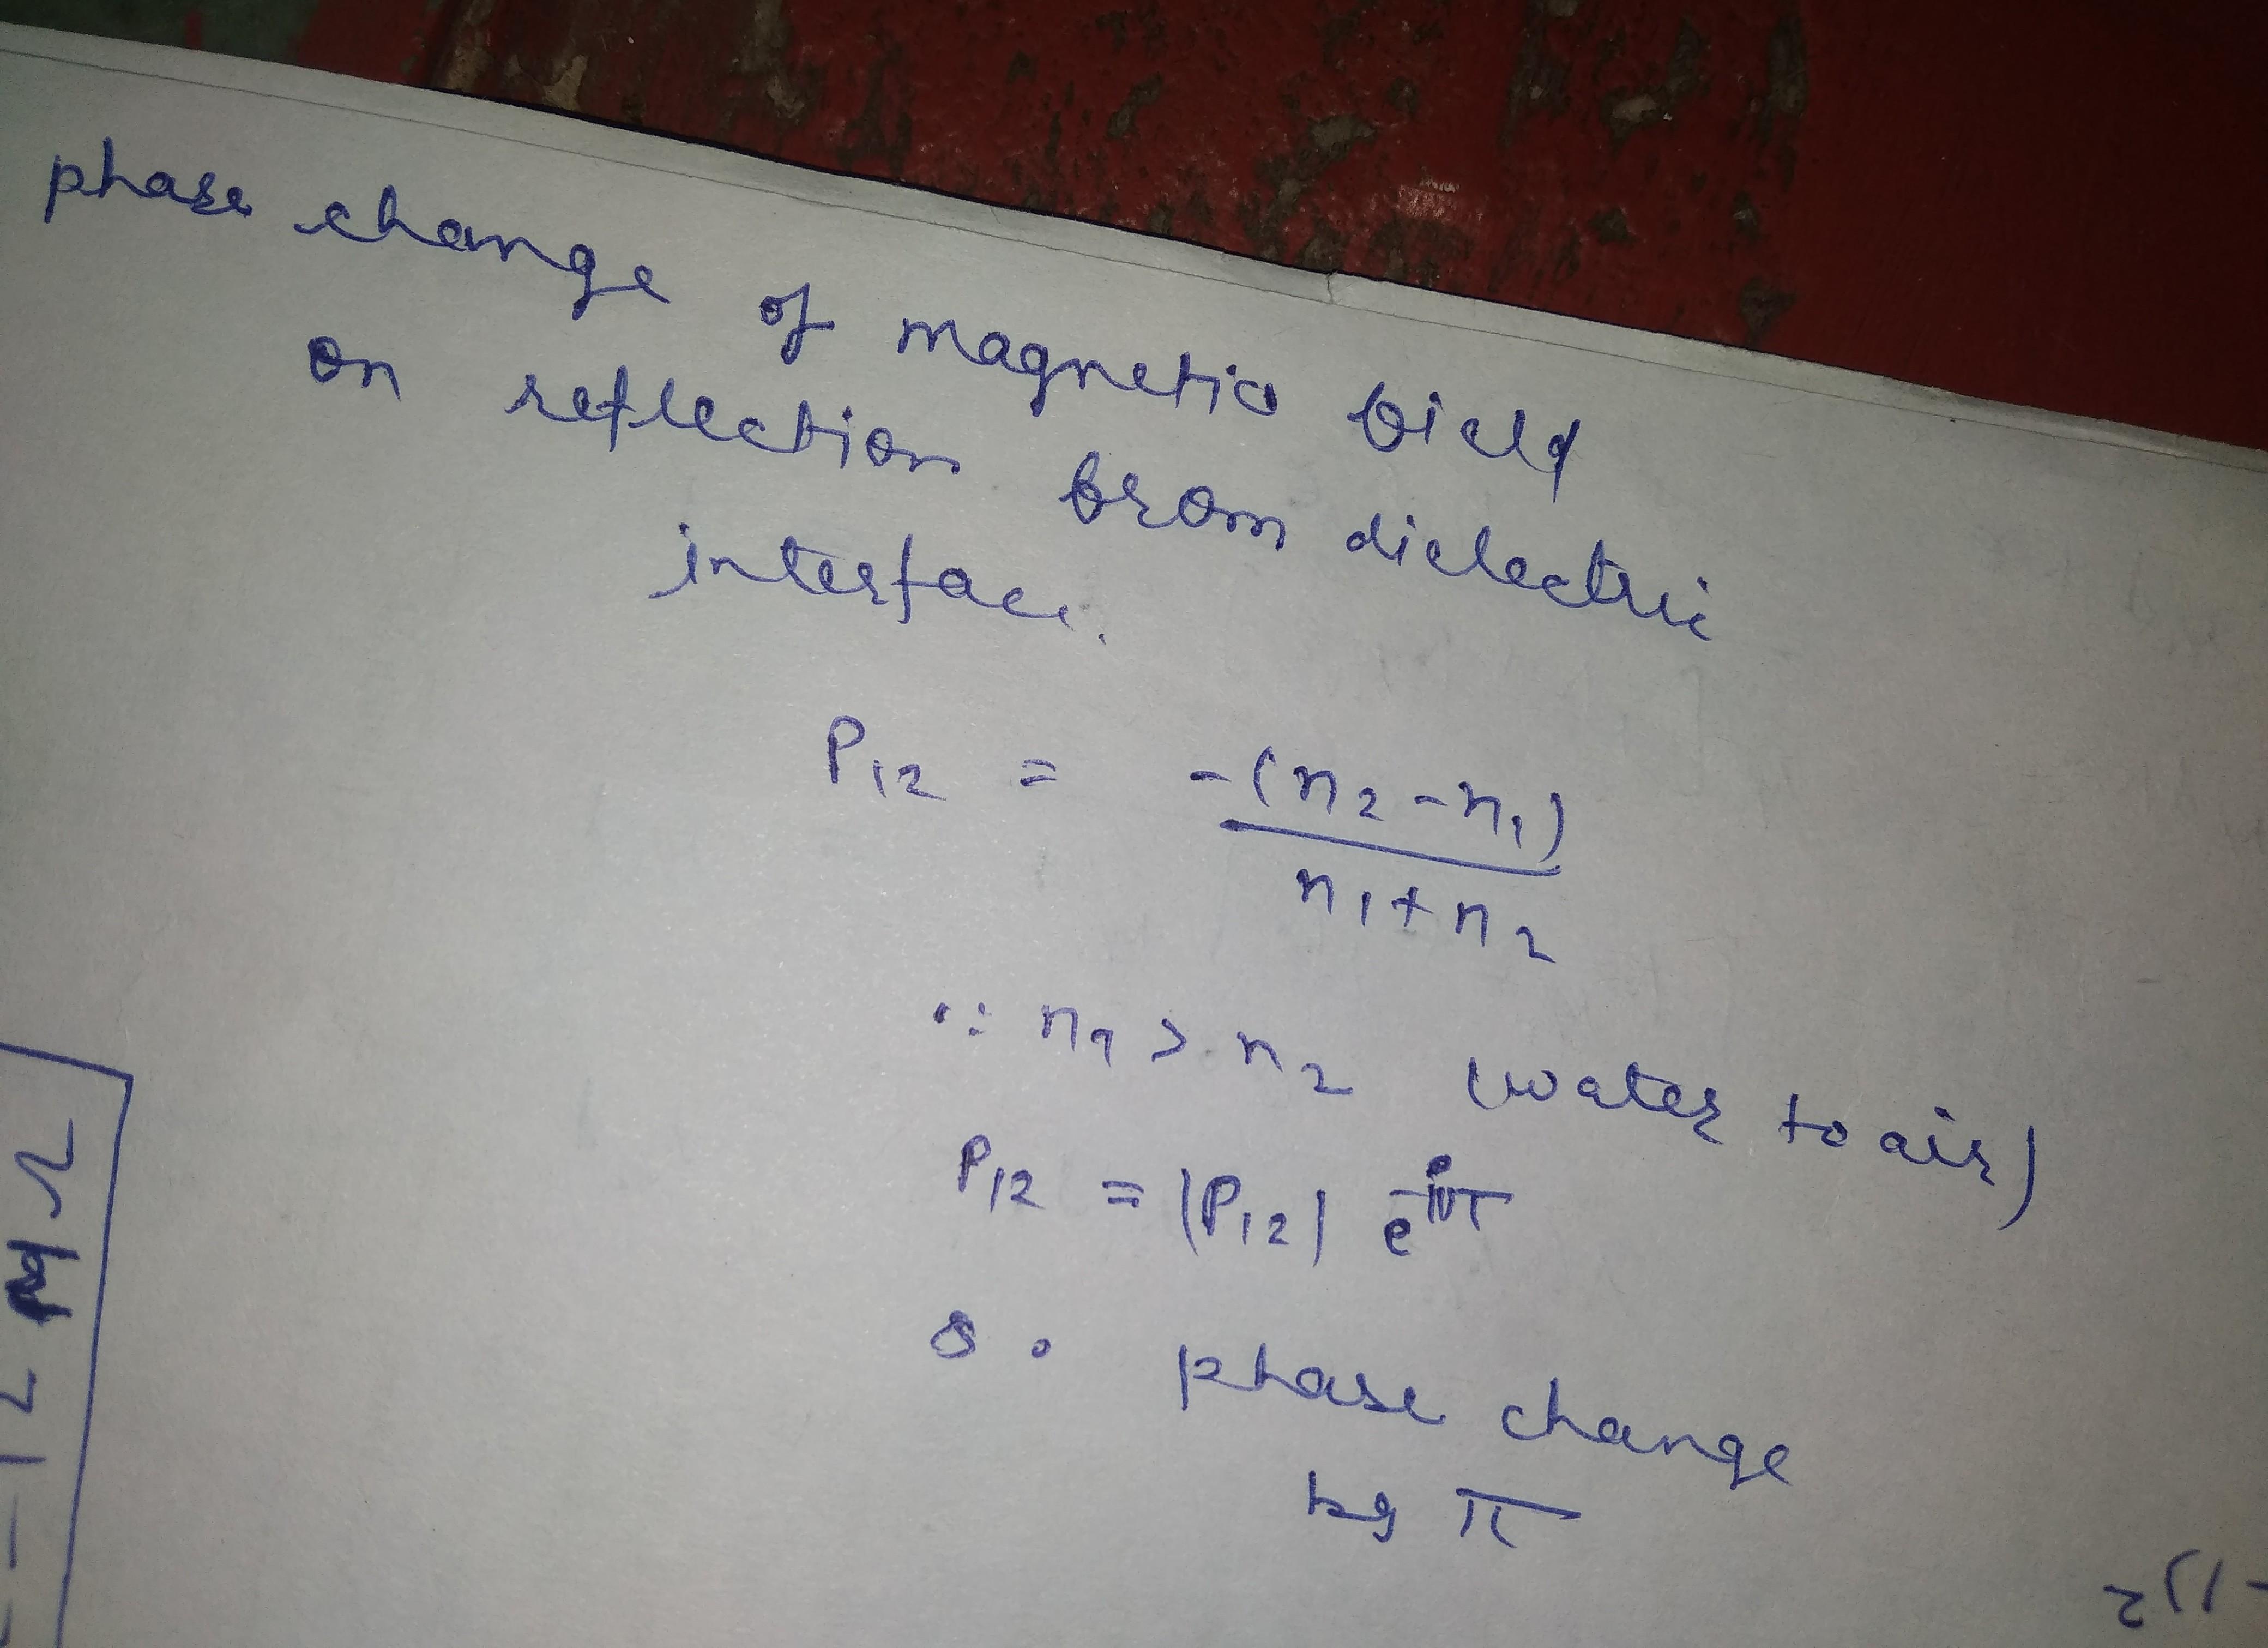 phase change of magnetic field
on reflection from dielectric
interface.
P₁₂ = -(n₂-n₁)
n₁+n₂
∵ n₁ > n₂ (water to air)
P₁₂ = |P₁₂| e^iπ
So phase change
by π